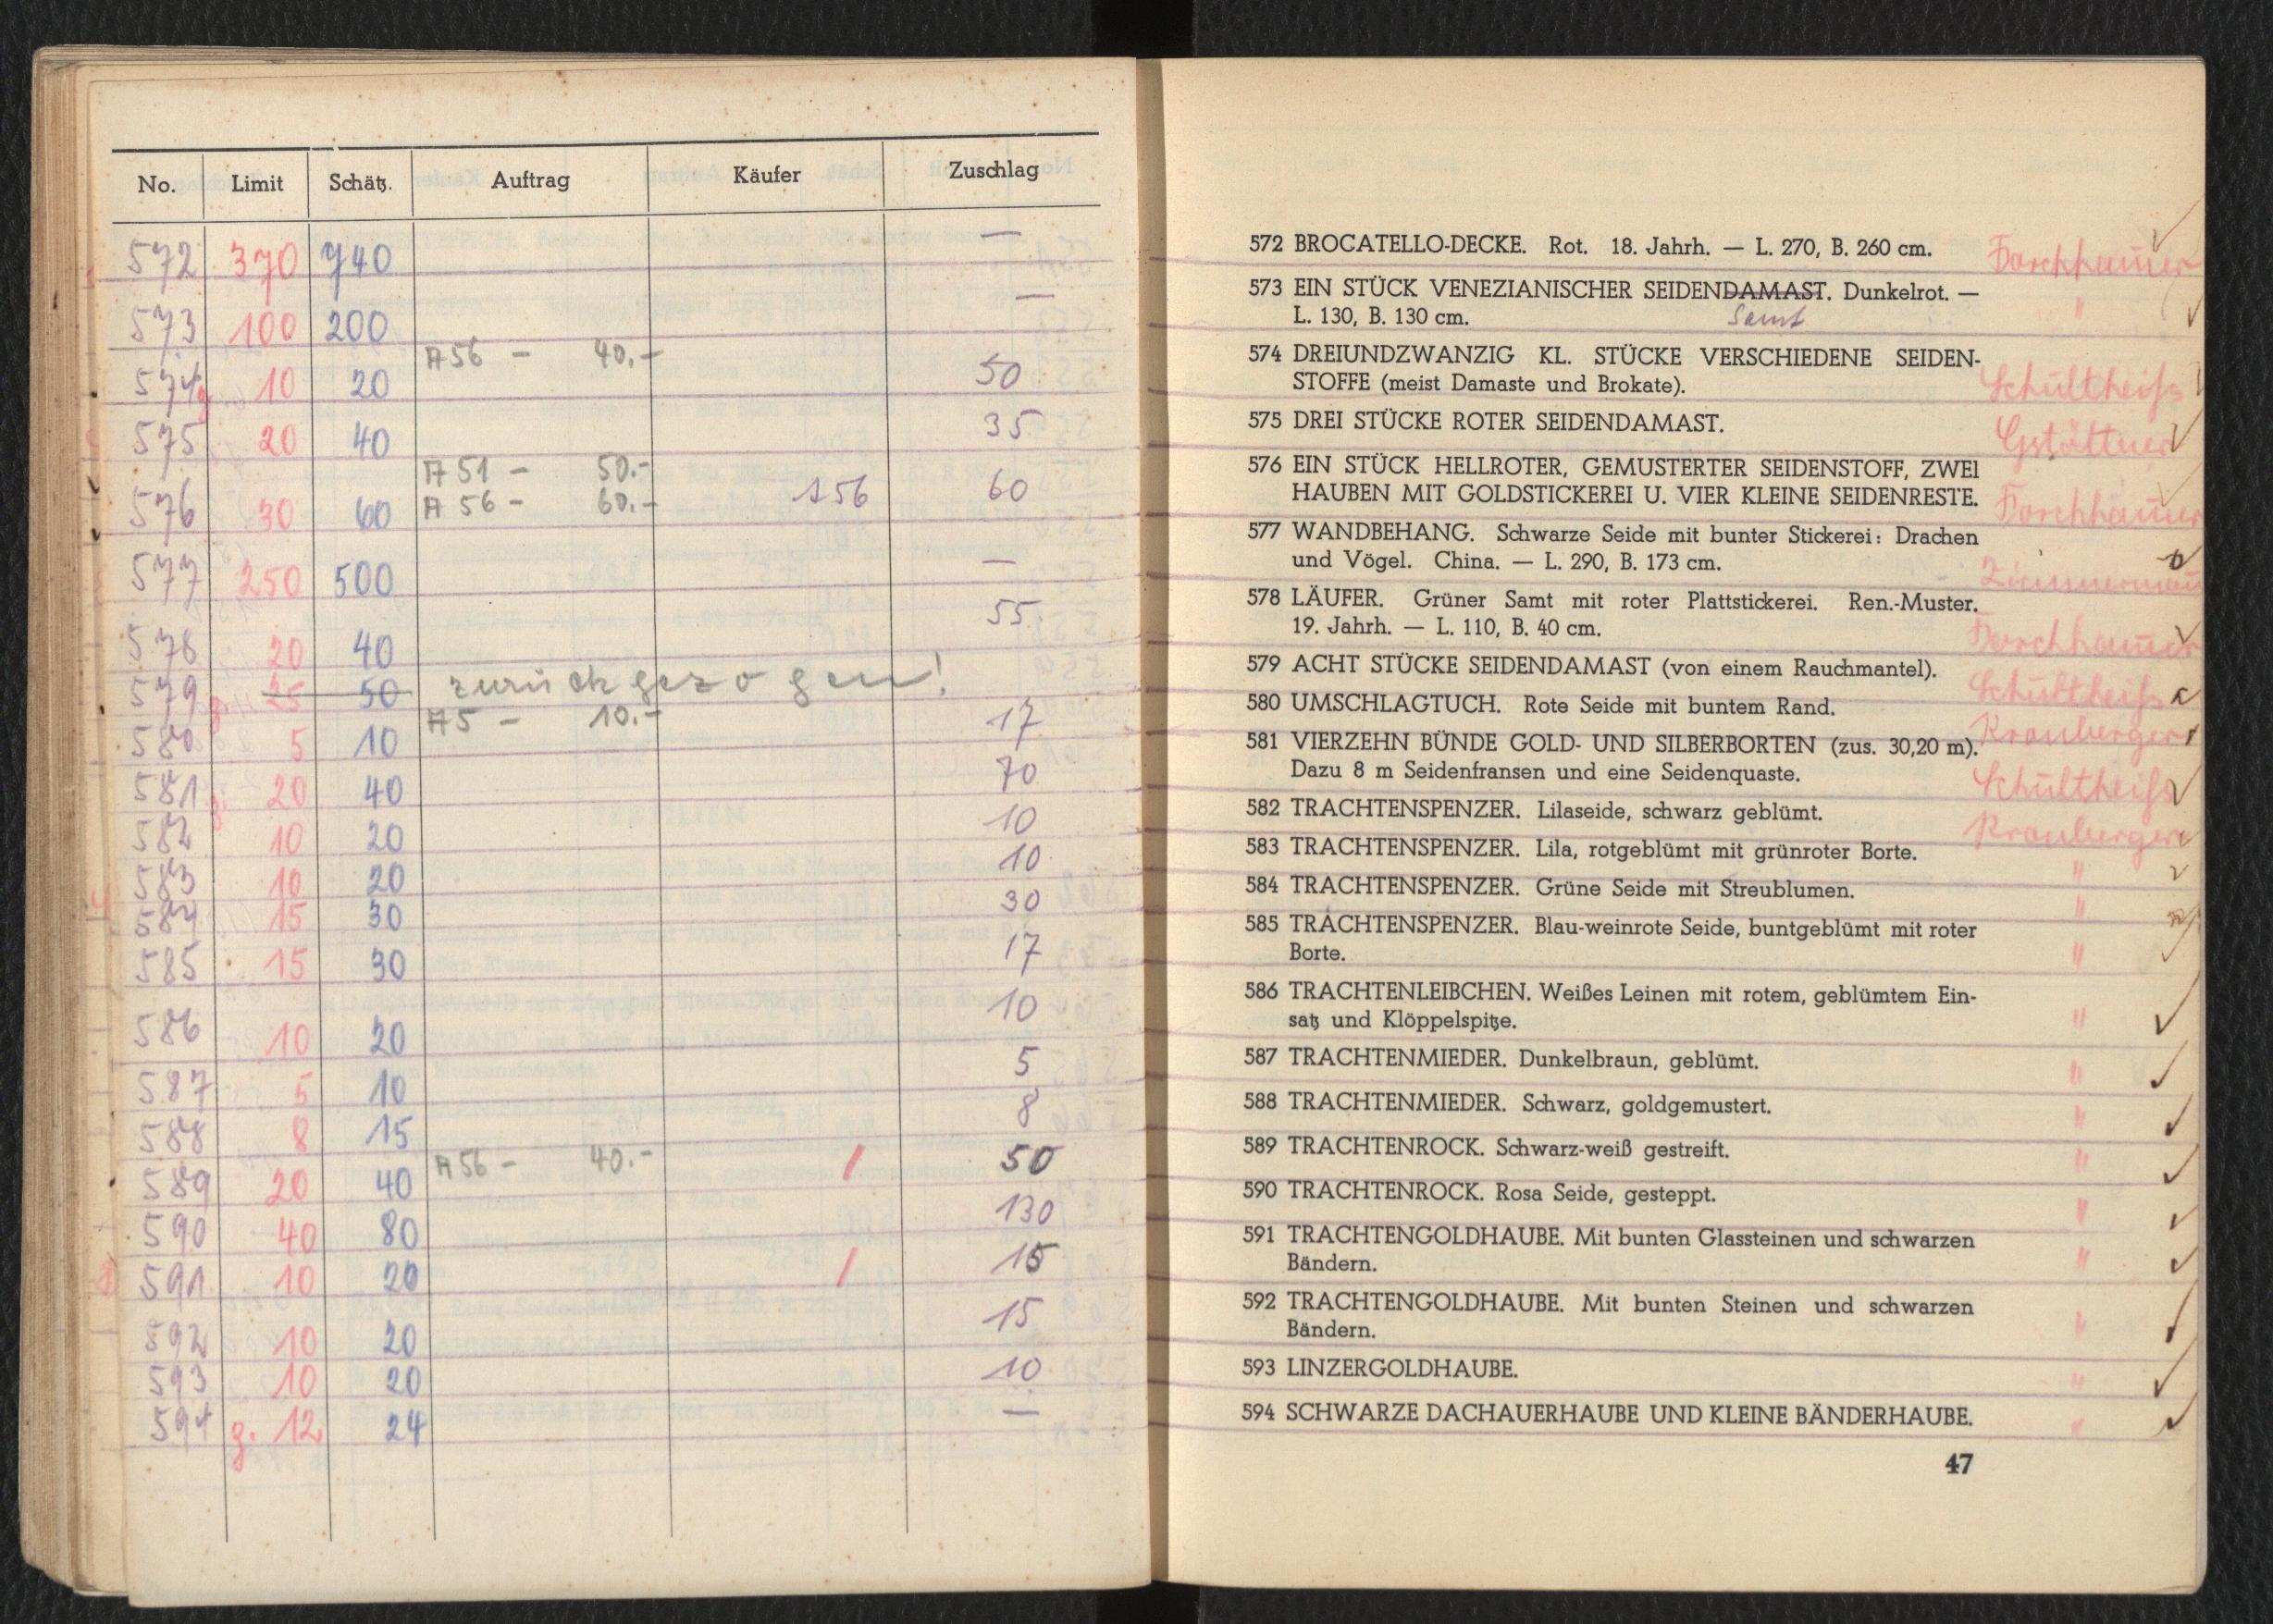 No. Limit Schätz. Auftrag Käufer Zuschlag
572 370 740 —
573 100 200 —
A 56 – 40.–
574 10 20 50
575 20 40 35
A 51 – 50.–
576 30 60 A 56 – 60.– A 56 60
577 250 500 —
578 20 40 55
579 25 50 zurückgezogen!
A 5 – 10.–
580 5 10 17
581 20 40 70
582 10 20 10
583 10 20 10
584 15 30 30
585 15 30 17
586 10 20 10
587 5 10 5
588 8 15 8
589 20 40 A 56 – 40.– / 50
590 40 80 130
591 10 20 / 15
592 10 20 15
593 10 20 10
594 z. 12 24 —
572 BROCATELLO-DECKE. Rot. 18. Jahrh. — L. 270, B. 260 cm. Forchhamer
573 EIN STÜCK VENEZIANISCHER SEIDENDAMAST. Dunkelrot. — "
L. 130, B. 130 cm. Samt
574 DREIUNDZWANZIG KL. STÜCKE VERSCHIEDENE SEIDEN-
STOFFE (meist Damaste und Brokate). Schultheiss
575 DREI STÜCKE ROTER SEIDENDAMAST. Gstättner
576 EIN STÜCK HELLROTER, GEMUSTERTER SEIDENSTOFF, ZWEI
HAUBEN MIT GOLDSTICKEREI U. VIER KLEINE SEIDENRESTE. Forchhamer
577 WANDBEHANG. Schwarze Seide mit bunter Stickerei: Drachen
und Vögel. China. — L. 290, B. 173 cm. Zimmermann
578 LÄUFER. Grüner Samt mit roter Plattstickerei. Ren.-Muster.
19. Jahrh. — L. 110, B. 40 cm. Forchhamer
579 ACHT STÜCKE SEIDENDAMAST (von einem Rauchmantel). Schultheiss
580 UMSCHLAGTUCH. Rote Seide mit buntem Rand. Kronberger
581 VIERZEHN BÜNDE GOLD- UND SILBERBORTEN (zus. 30,20 m).
Dazu 8 m Seidenfransen und eine Seidenquaste. Schultheiss
582 TRACHTENSPENZER. Lilaseide, schwarz geblümt. Kronberger
583 TRACHTENSPENZER. Lila, rotgeblümt mit grünroter Borte. "
584 TRACHTENSPENZER. Grüne Seide mit Streublumen. "
585 TRACHTENSPENZER. Blau-weinrote Seide, buntgeblümt mit roter
Borte. "
586 TRACHTENLEIBCHEN. Weißes Leinen mit rotem, geblümtem Ein-
satz und Klöppelspitze. "
587 TRACHTENMIEDER. Dunkelbraun, geblümt. "
588 TRACHTENMIEDER. Schwarz, goldgemustert. "
589 TRACHTENROCK. Schwarz-weiß gestreift. "
590 TRACHTENROCK. Rosa Seide, gesteppt. "
591 TRACHTENGOLDHAUBE. Mit bunten Glassteinen und schwarzen
Bändern. "
592 TRACHTENGOLDHAUBE. Mit bunten Steinen und schwarzen
Bändern. "
593 LINZERGOLDHAUBE. "
594 SCHWARZE DACHAUERHAUBE UND KLEINE BÄNDERHAUBE. "
47